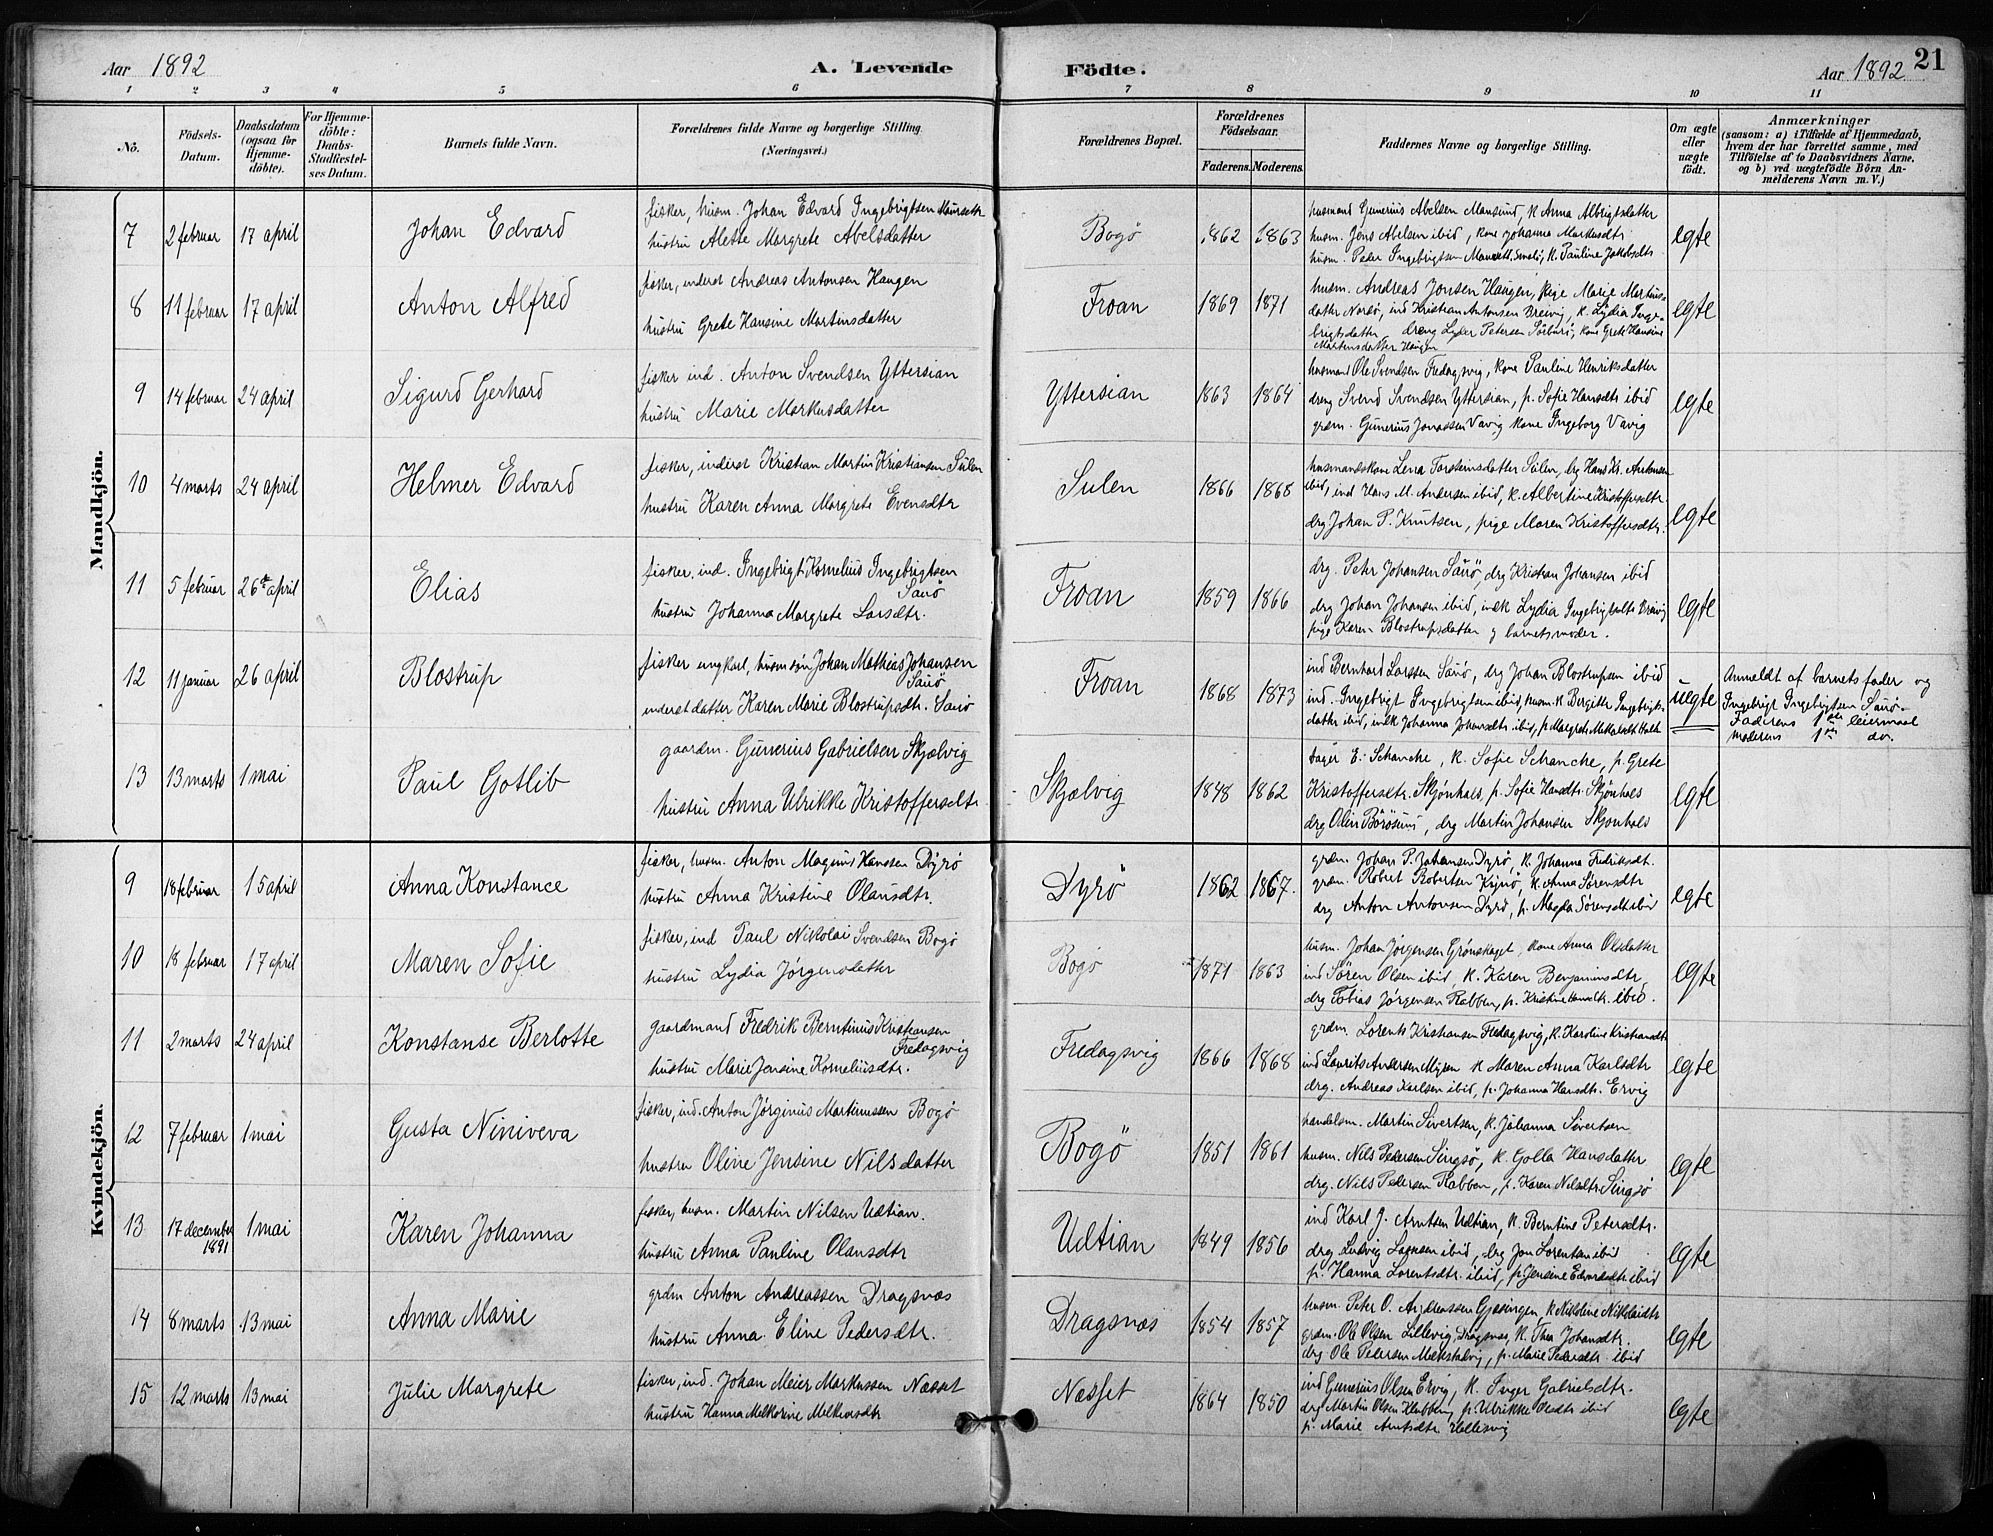 Aar 1892
A. Levende Födte.
Aar 1892
21
1 2 3 4 5 6 7 8 9 10 11
No.
Födsels-Datum.
Daabsdatum (ogsaa for Hjemme-döbte).
For Hjemme-döbte: Daabs-Stadfæstel-ses Datum.
Barnets fulde Navn.
Forældrenes fulde Navne og borgerlige Stilling. (Næringsvei.)
Forældrenes Bopæl.
Forældrenes Födselsaar.
Faderens. Moderens.
Faddernes Navne og borgerlige Stilling.
Om ægte eller uægte födt.
Anmærkninger
(saasom: a) i Tilfælde af Hjemmedaab, hvem der har forrettet samme, med Tilföielse af to Daabsvidners Navne, og b) ved uægtefödte Börn An-melderens Navn m. V.)
Mandkjön.
7 2 februar 17 april Johan Edvard
fisker, husm. Johan Edvard Ingebrigtsen
hustru Alette Margrete Abelsdatter
Bogö 1862 1863
husmand Gunerius Abelsen Mansund, k Anna Albrigtsdatter
husm. Jens Abelsen ibid, kone Johanna Markusdtr
husm. Peder Ingebrigtsen k. Pauline Jakobsdtr
egte
8 11 februar 17 april Anton Alfred
fisker, inderst Andreas Antonsen Haugen
hustru Grete Hansine Martinsdatter
Froan 1869 1871
husm. Andreas Jonsen Haugen, pige Marie Martins-
datter Nordö, ind Kristian Antonsen Breivig, k. Lydia Inge-
brigtsdatter, dreng Petersen kone Grete Hansine
Martinsdatter Haugen
egte
9 14 februar 24 april Sigurd Gerhard
fisker ind. Anton Svendsen Yttersian
hustru Marie Markusdatter
Yttersian 1863 1864
husmand Ole Svendsen Fredagsvig, kone Pauline Henriksdatter
dreng Svend Svendsen Yttersian, p. Sofie Hansdtr ibid
grdm. Gunerius Jonassen Vavig kone Ingeborg Vavig
egte
10 4 marts 24 april Helmer Edvard
fisker, inderst Kristian Martin Kristiansen Sulen
hustru Karen Anna Margrete Evensdtr
Sulen 1866 1868
husmandskone Lena Torsteinsdatter Sulen, drg Hans Kr. Antonsen
ibid, ind Hans M. Andersen ibid, k. Albertine Kristoffersdtr.
drg Johan P. Knutsen, pige Maren Kristoffersdtr.
egte
11 5 februar 26de april Elias
fisker, ind. Ingebrigt Kornelius Ingebrigtsen
Saurö
hustru Johanna Margrete Larsdtr.
Froan 1859 1866
drg. Petr Johansen Saurö, drg Kristian Johansen ibid
drg Johan Johansen ibid, indk Lydia Breivig
pige Karen Blostrupsdatter og barnets moder.
egte
12 11 januar 26 april Blostrup
fisker ungkarl, husm søn Johan Mathias Johansen
Saurö
inderst datter Karen Marie Blostrupsdtr. Saurö
Froan 1868 1873
ind Bernhard Larssen Saurö, drg Johan Blostrupsen ibid
ind. Ingebrigt Ingebrigtsen ibid, husm. k Bergitte Ingebrigts-
datter ibid, indk Johanna Johansdtr ibid, p Margrete
uegte
Anmeldt af barnets fader og
Ingebrigt Ingebrigtsen Saurö.
Faderens 1ste leiermaal
moderens 1ste do.
13 13 marts 1 mai Paul Gotlib
gaardm. Gunerius Gabrielsen Skjælvig
hustru Anna Ulrikke Kristoffersdtr
Skjælvig 1848 1862
E. Schancke, k. Sofie Schancke, p. Grete
Kristoffersdtr. Skjønhals, p. Sofie Hansdtr Skjønhals
drg Olin Börösund, drg Martin Johansen Skjønhals
egte
Kvindekjön.
9 18 februar 15 april Anna Konstance
fisker, husm. Anton Magnus Hanssen Dyrö
hustru Anna Kristine Olausdtr.
Dyrö 1862 1867.
grdm. Johan P. Johansen Dyrö, k. Johanna Fredriksdtr.
grdm. Robret Robertsen k. Anna Sörensdtr
drg Anton Antonsen Dyrö, p. Magda Sörensdtr ibid
egte
10 18 februar 17 april Maren Sofie
fisker, ind Paul Nikolai Svendsen Bogö
hustru Lydia Jörgensdatter
Bogö 1871 1863
husm. Johan Jörgensen Grönskaget, kone Anna Olsdatter
ind Sören Olsen ibid, k. Karen Benjaminsdtr
drg Tobias Jörgensen Rabben, p. Kristine Hansdtr. ibid.
egte
11 2 marts 24 april Konstanse Berlotte
gaardmand Fredrik Berntinus Kristiansen
Fredagsvig
hustru Marie Jensine Korneliusdtr.
Fredagsvig 1866 1868
grdm. Lorents Kristiansen Fredagsvig, k. Karoline Kristiansdtr
ind Laurits Andersen Myren k Maren Anna Karlsdtr
drg. Andreas Karlsen ibid, p. Johanna Hansdtr. Ervig
egte
12 7 februar 1 mai Gusta Niniveva
fisker, ind. Anton Jörginus Martinussen Bogö
hustru Oline Jensine Nilsdatter
Bogö 1851 1861
handelsm. Martin Sivertsen, k. Johanna Sivertsen
husm. Nils Pedersen Singsö, k Golla Hansdatter
drg. Nils Pedersen Rabben, p. Karen Nilsdtr. Singsö
egte
13 17 december 1891 1 mai Karen Johanna
fisker, husm. Martin Nilsen Udtian.
hustru Anna Pauline Olausdtr
Udtian 1849 1856
ind Karl J. Arntsen Udtian, k. Berntine Petersdtr.
drg Ludvig ibid, drg Jon Lorentsen ibid
p. Hanna Lorentsdtr. ibid, p. Jensine Edvardsdtr ibid
egte
14 8 marts 13 mai Anna Marie
grdm Anton Andreassen Dragsnæs
hustru Anna Eline Pedersdtr.
Dragsnæs 1854 1857
husm. Peter O. Andreassen Gjæsingen, k Nikoline Nikolaidtr
grdm. Ole Olsen Lillevig, Dragsnæs, k. Thea Johansdtr.
drg Ole Petersen p. Marie Pedersdtr. ibid
egte
15 12 marts 13 mai Julie Margrete
fisker, ind. Johan Meier Markussen Næsset
hustru Hanna Melkorine Melkersdtr
Næsset 1864 1850
ind Gunerius Olsen Ervig, k. Inger Gabrielsdtr.
drg Martin Olsen Klubben, p. Ulrikke Olsdtr ibid
p. Marie Arntsdtr. Vallersvig
egte